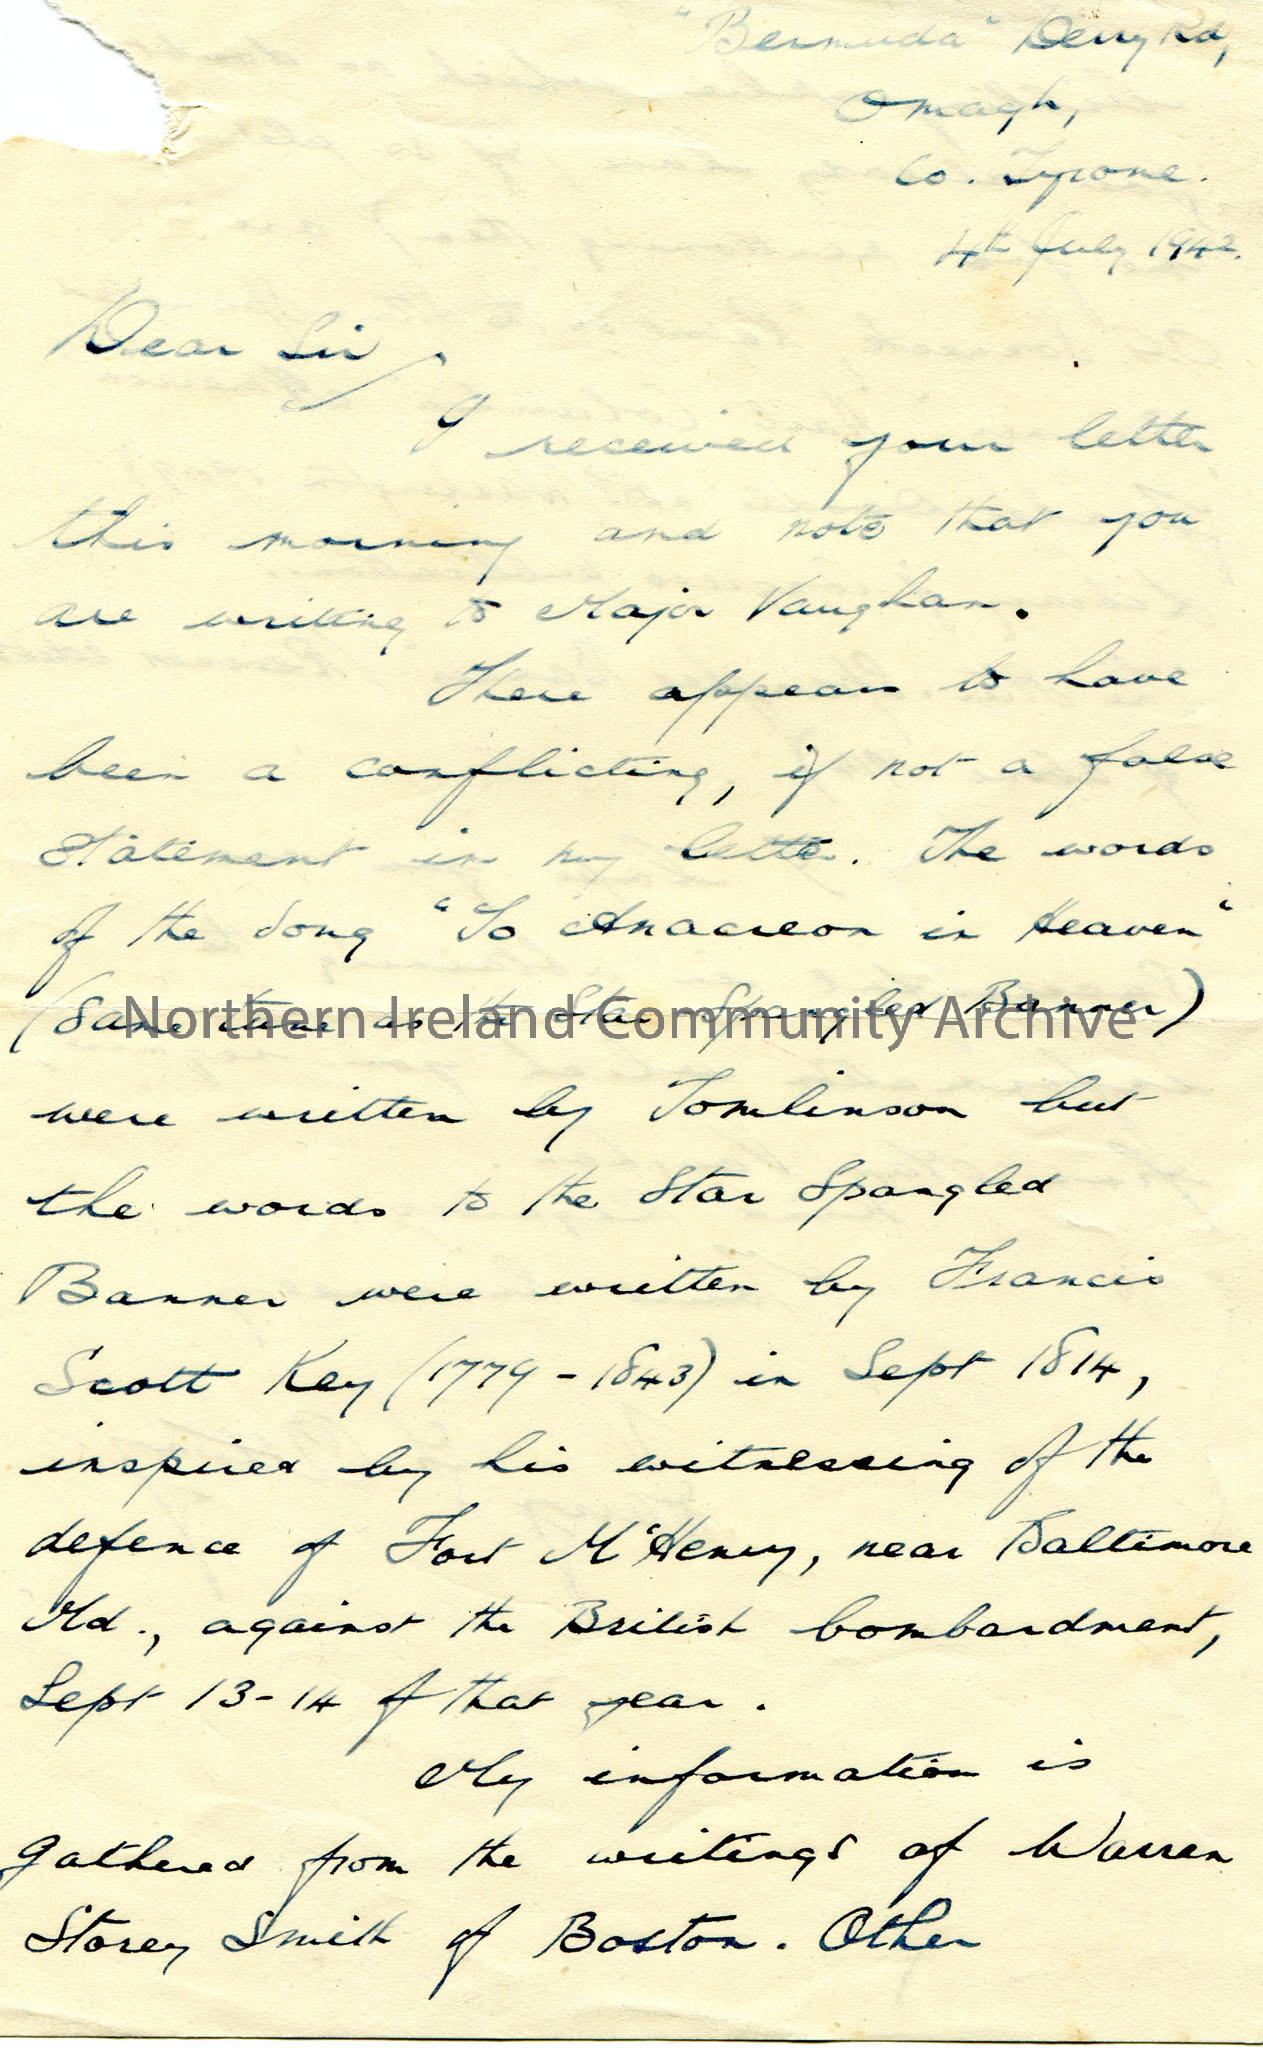 "Bermuda" Derry Rd,
Omagh,
Co. Tyrone.
4th July 1942.
Dear Sir,
I received your letter
this morning and note that you
are writing to Major Vaughan.
There appears to have
been a conflicting, if not a false
statement in my letter. The words
of the song "To Anacreon in Heaven"
(Same tune as the Star Spangled Banner)
Northern Ireland Community Archive
were written by Tomlinson but
the words to the Star Spangled
Banner were written by Francis
Scott Key (1779-1843) in Sept 1814,
inspired by his witnessing of the
defence of Fort McHenry, near Baltimore
Md., against the British bombardment,
Sept 13-14 of that year.
My information is
gathered from the writings of Warren
Storey Smith of Boston. Other